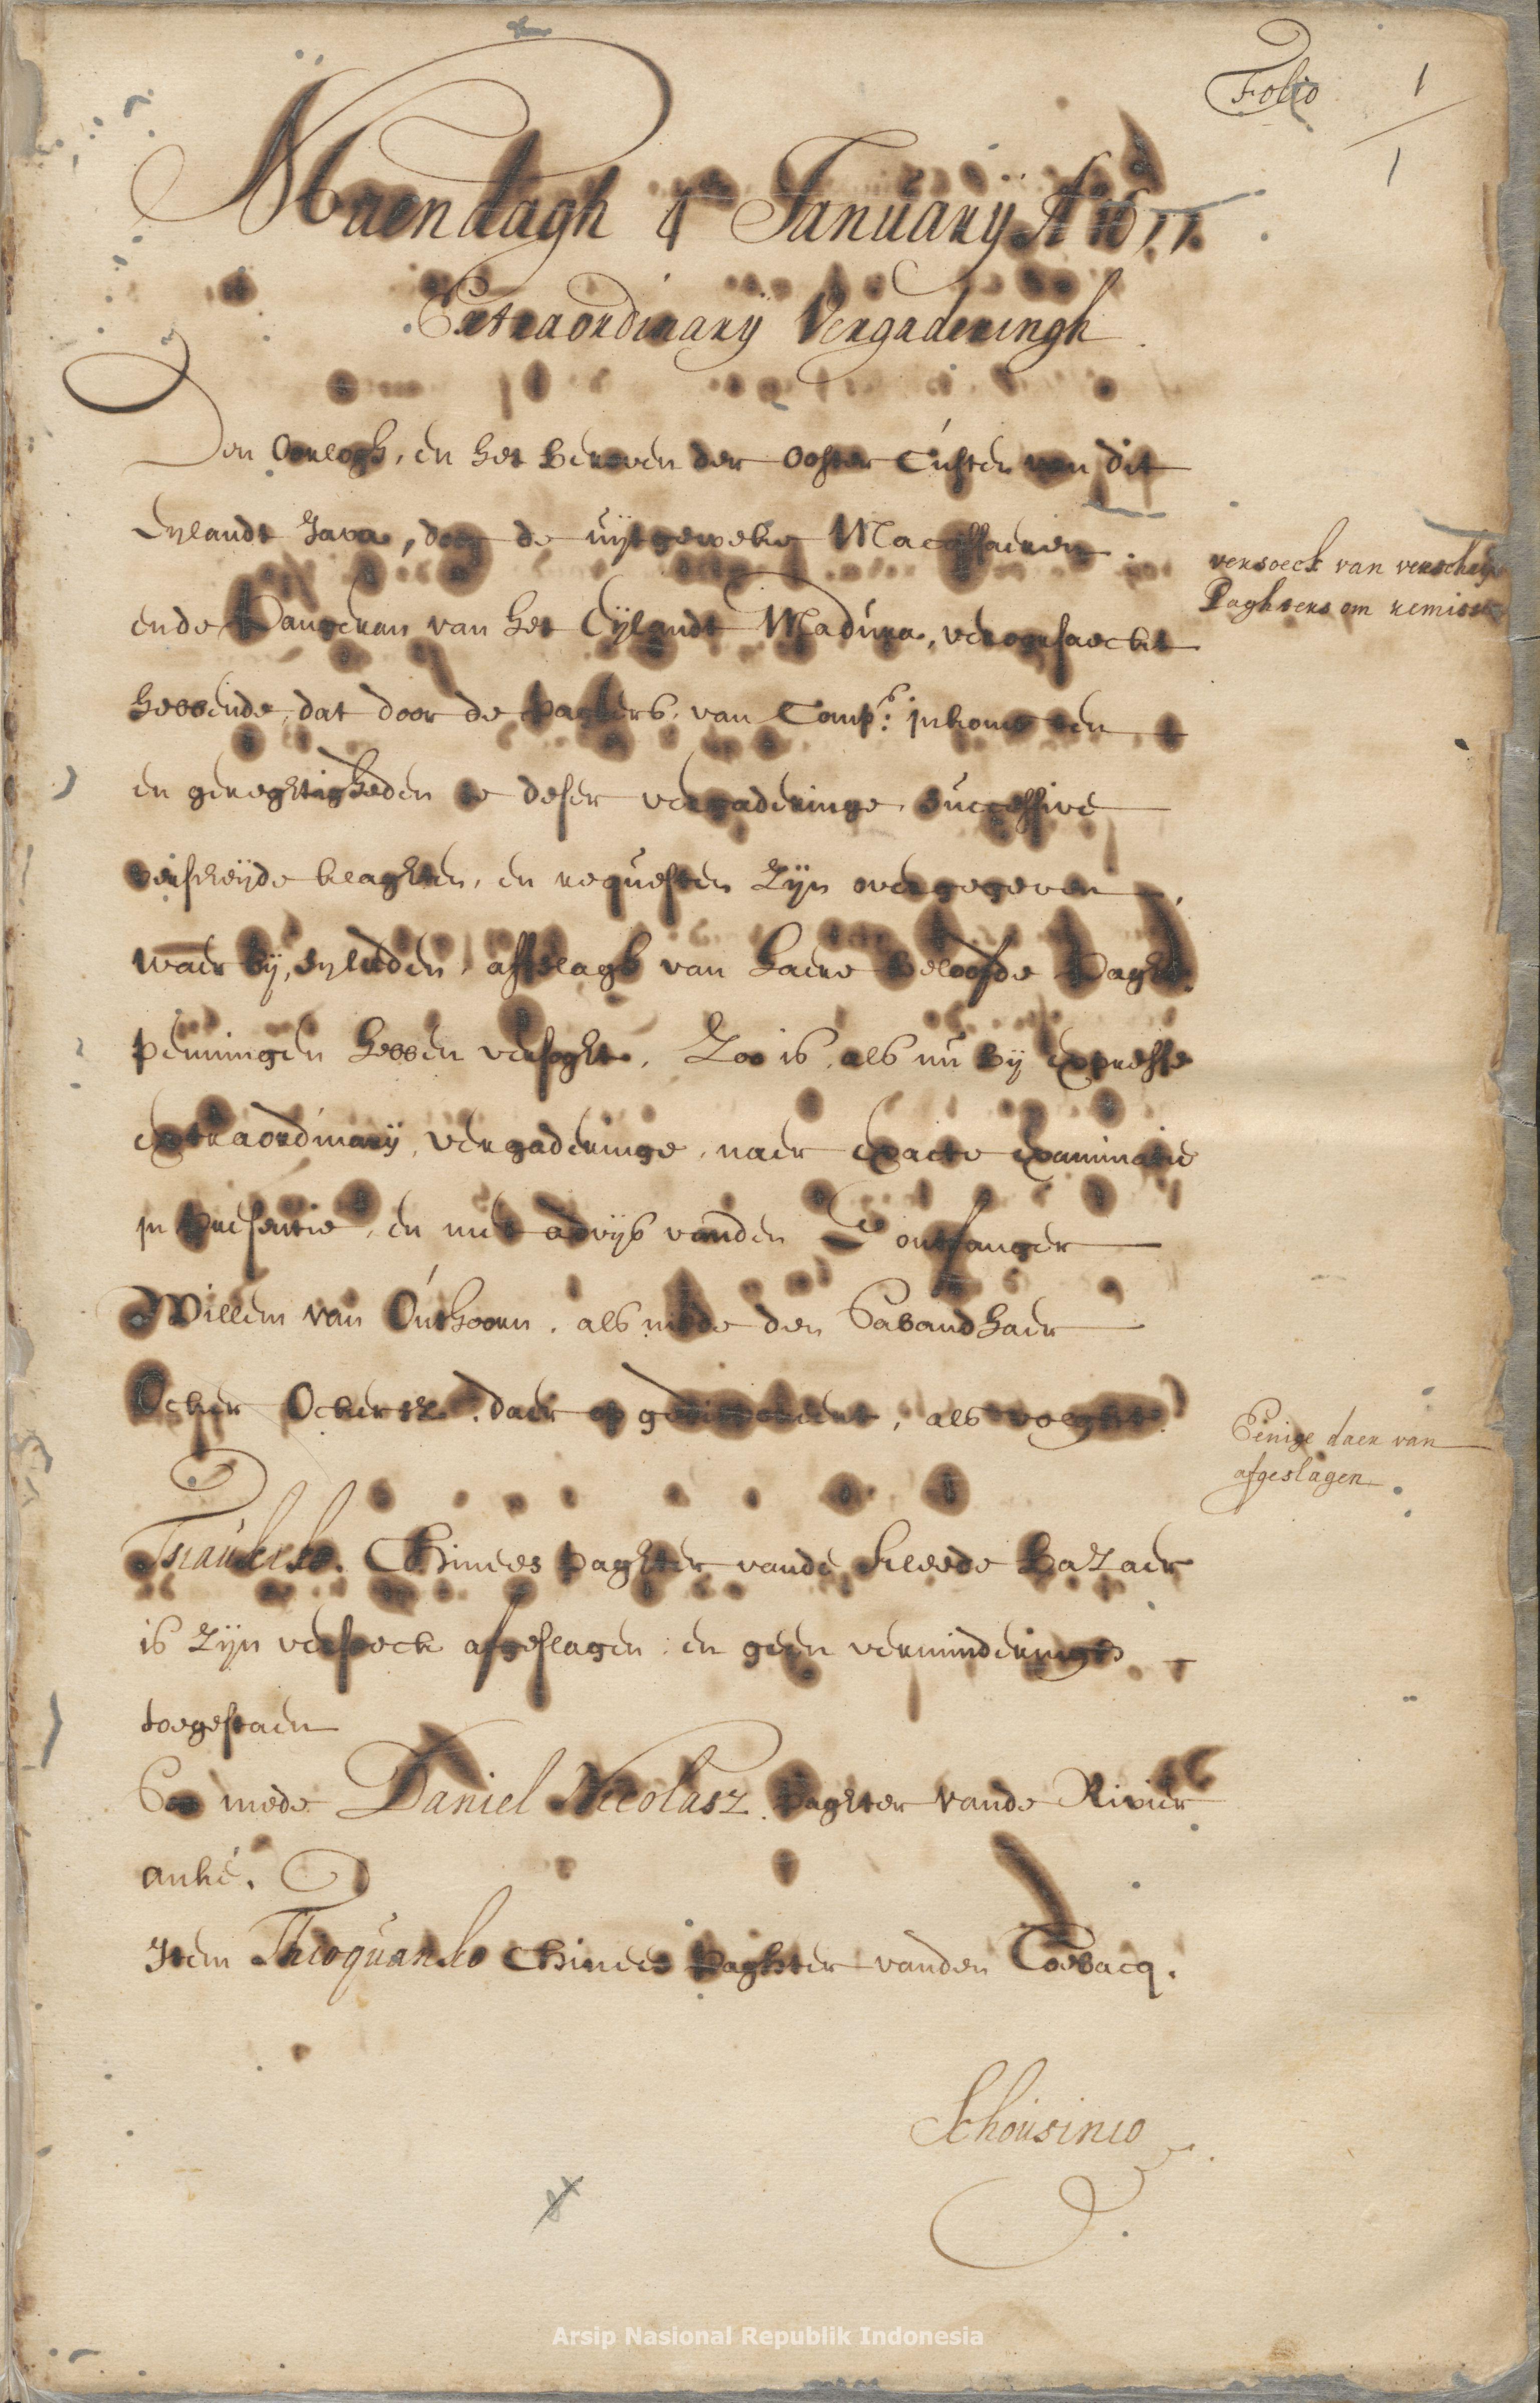 Folio 1
1
Maendagh 4 January A 1677.
Extraordinarij Vergaderingh
Den Oorlogh, en het beroven der Ooster Custen van dit
Eylandt Java, door de uijtgeweke Macassaeren.
ende Pangeran van het Eijlandt Madura, veroorsaeckt
hebbende, dat door de pagters, van Comp.s inkomsten
en geregtigheden te deser vergaderinge, successive
verscheijde klaghten, en requesten zijn overgegeven
waer bij, sijluden, afslagh van haere beloofde Paght
penningen hebben versoght, Zoo is, als nu bij expresse
extraordinarij, vergaderinge, naer exacte examinatie
in presentie, en met advijs vanden E ontfanger
Willem van Outhoorn, als mede den Sabandhaer
Ocker Ockersz. daer op gedisponeert, als volght.
versoeck van verscheij
Paghters om remissie
Eenige daer van
afgeslagen
Chinees paghter vande kleede Bazaer
is zijn versoeck afgeslagen: en geen verminderinge
toegestaen
Soo mede Daniel Nicolasz. Paghter vande Rivier
anké.
Item Theoquanko Chinees Paghter vanden Toebacq.
Schousinio
Arsip Nasional Republik Indonesia